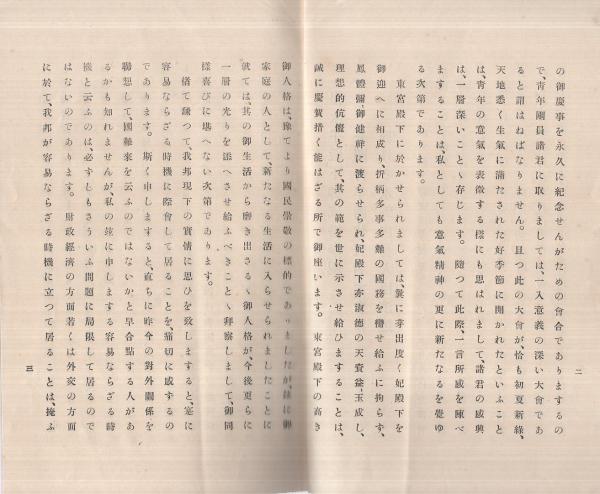 の御慶事を永久に紀念せんがための會合でありまするの
で、青年團員諸君に取りましては、一入意義の深い大會であ
ると謂はねばなりません。且つ此の大會が、恰も初夏新綠、
天地悉く生氣に滿たされた好季節に開かれたといふこと
は、青年の意氣を表徵する樣にも思はれまして、諸君の感興
は、一層深いことゝ存じます。隨つて此際、一言所感を陳べ
ますることは、私としても意氣精神の更に新たなるを覺ゆ
る次第であります。
東宮殿下に於かせられましては、曩に芽出度く妃殿下を
御迎へに相成り、折柄多事多難の國務を攝せ給ふに拘らず、
鳳體彌〻御健祥に渡らせられ、妃殿下亦淑德の天資益〻玉成し、
理想的伉儷として、其の範を世に示させ給ひますることは、
誠に慶賀措く能はざる所で御座います。東宮殿下の高き
御人格は、豫てより國民崇敬の標的でありましたが、
家庭の人として、新たなる生活に入らせられましたことに
就ては、其の御生活から磨き出さるゝ御人格が、今後更らに
一層の光りを添へさせ給ふべきことゝ拜察しまして、御同
樣喜びに堪へない次第であります。
倩て飜つて、我邦現下の實情に思ひを致しますると、寔に
容易ならざる時機に際會して居ることを、痛切に感ずるの
であります。斯く申しますると、直ちに昨今の對外關係を
聯想して、國難來を云ふのではないかと早合點する人があ
るかも知れませんが、私の玆に申しまする容易ならざる時
機と云ふのは、必ずしもさういふ問題に局限して居るので
はないのであります。財政經濟の方面若くは外交の方面
に於て、我邦が容易ならざる時機に立つて居ることは、掩ふ
二
三